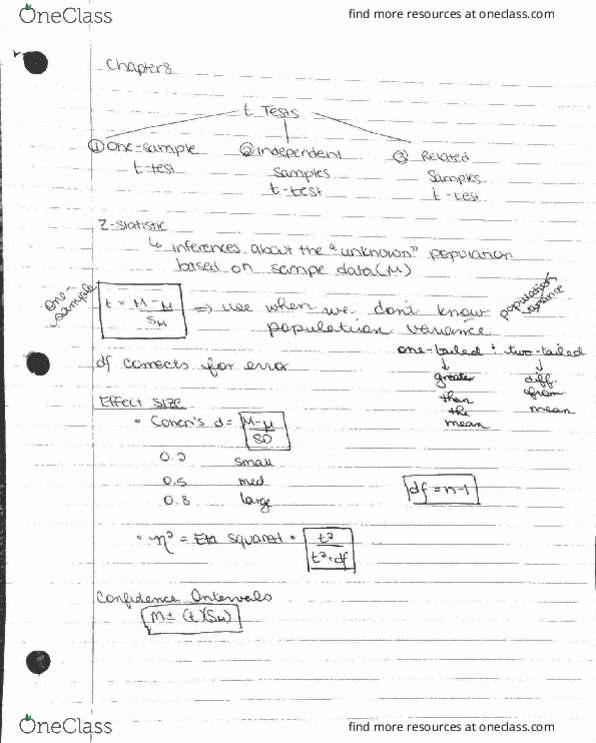 OneClass
find more resources at oneclass.com
Chapter 8
t Tests
① One-sample t-test
② Independent samples t-test
③ Related Samples t-test
Z-Statistic
↳ inferences about the "unknown" population
based on sampe data (M)
one-sample
t = M-μ / SM ⇒ use when we don't know
population variance
population variance
df corrects for error
one-tailed : two-tailed
↓ greater then the mean
↓ diff. from mean
Effect Size
• Cohen's d = M-μ / SD
0.2 small
0.5 med
0.8 large
df = n-1
• η² = Eta squared = t² / t²+df
Confidence Intervals
M ± (t)(SM)
OneClass
find more resources at oneclass.com